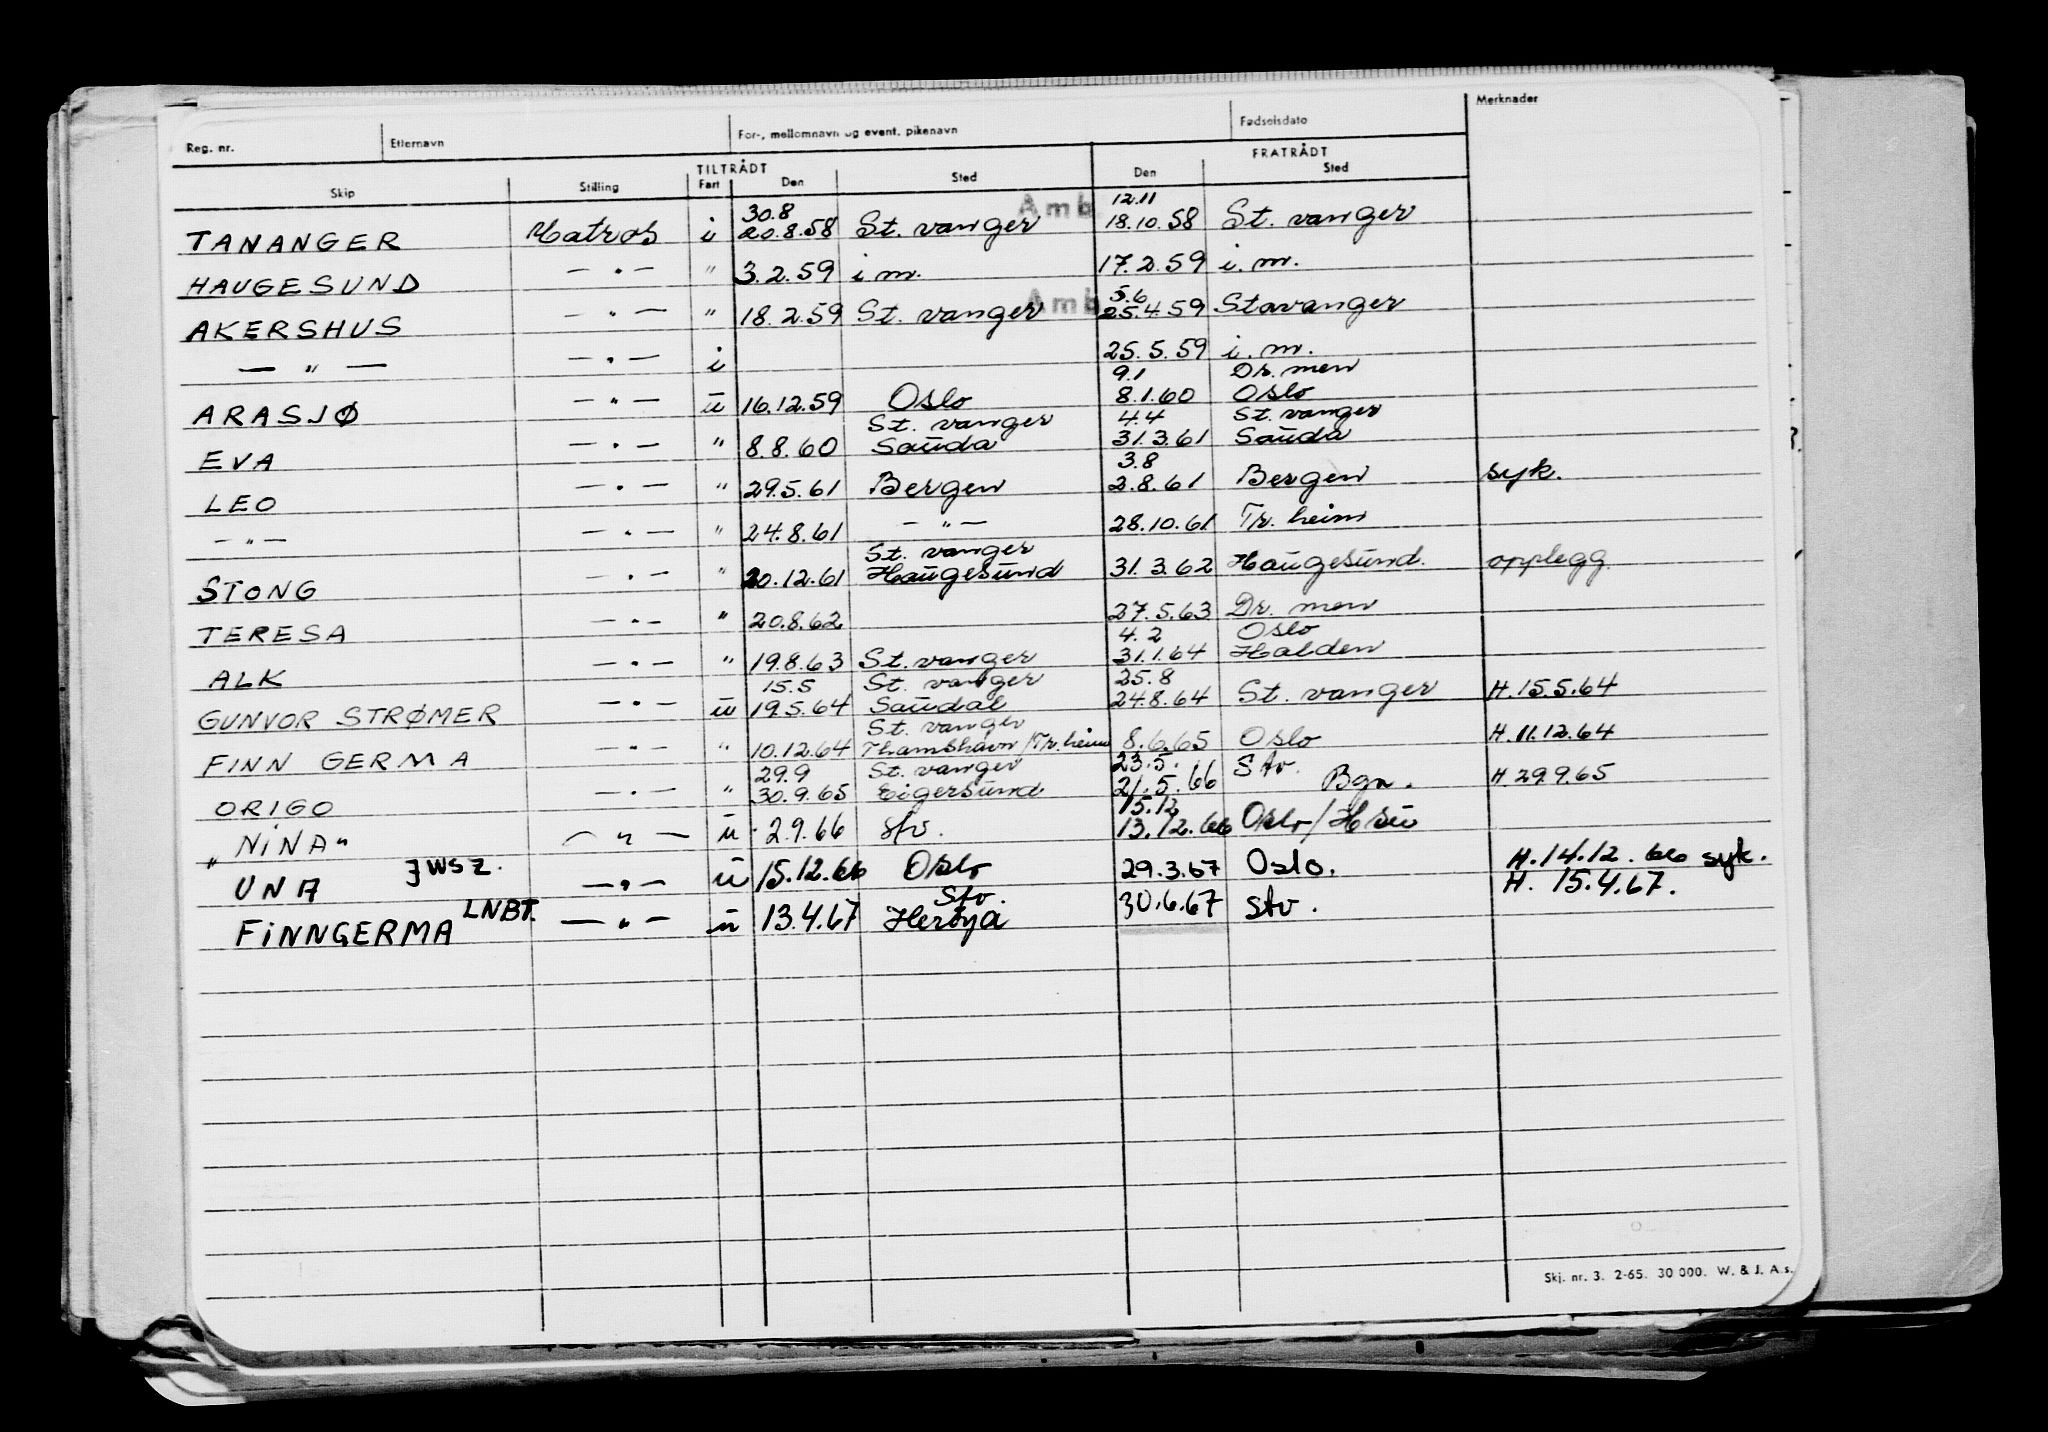 Reg. nr. Etternavn For-, mellomnavn og event. pikenavn Fødselsdato Merknader
TILTRÅDT FRATRÅDT
Skip Stilling Fart Den Sted Den Sted
30.8 Amb. 12.11
TANANGER Matros i 20.8.58 St. vanger 18.10.58 St. vanger
HAUGESUND — " — " 3.2.59 i m. 17.2.59 i. m.
Amb. 5.6
AKERSHUS — " — " 18.2.59 St. vanger 25.4.59 Stavanger
— " — — " — i 25.5.59 i. m.
9.1 Dr. men
ARASJØ — " — u 16.12.59 Oslo 8.1.60 Oslo
St. vanger 4.4 St. vanger
EVA — " — " 8.8.60 Sauda 31.3.61 Sauda
3.8
LEO — " — " 29.5.61 Bergen 2.8.61 Bergen syk.
— " — — " — " 24.8.61 — " — 28.10.61 Tr. heim
St. vanger
STONG — " — " 20.12.61 Haugesund 31.3.62 Haugesund. opplegg.
TERESA — " — " 20.8.62 27.5.63 Dr. men
4.2 Oslo
ALK — " — " 19.8.63 St. vanger 31.1.64 Halden
15.5 St. vanger 25.8
GUNVOR STRØMER — " — u 19.5.64 Saudal 24.8.64 St. vanger H. 15.5.64
St. vanger
FINN GERMA — " — " 10.12.64 Thamshavn/Tr. heim 8.6.65 Oslo H. 11.12.64
29.9 St. vanger 23.5. Stv.
ORIGO — " — " 30.9.65 Eigersund 21.5.66 Bgn. H 29.9.65
15.12
"NINA" — " — u 2.9.66 Stv. 13.12.66 Oslo/Hsu
UNA JWSZ. — " — u 15.12.66 Oslo 29.3.67 Oslo. H. 14.12.66 syk.
Stv. H. 15.4.67.
FINNGERMA LNBT. — " — u 13.4.67 Herøya 30.6.67 Stv.
Skj. nr. 3. 2-65. 30 000. W. & J. A.s.